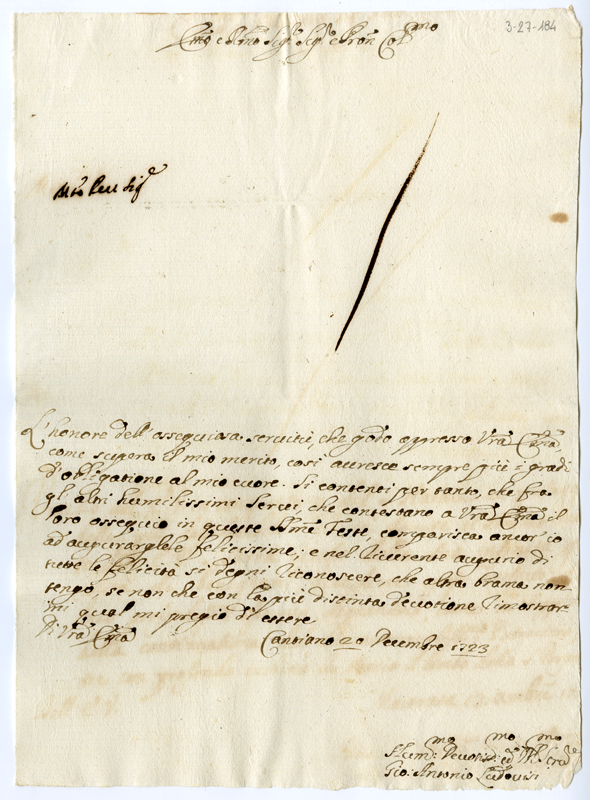 3-27-184
Emo e Rmo Sig.r Sig.r e Pron Colmo
L'honore dell'ossequiosa servitù, che godo appresso Vra Emza,
come supera il mio merito, così accresce sempre più i gradi
d'obligatione al mio cuore. Si contenti per tanto, che fra
gl'altri humilissimi Servi, che contestano a Vra Emza il
loro ossequio in queste Sme Feste, comparisca ancor io
ad augurargliele felicissime; e nel riverente augurio di
tutte le felicità si degni riconoscere, che altra brama non
tengo, se non che con la più distinta devotione rimostrar
mi qual mi pregio di essere
Di Vra Emza
Cantiano 20 Decembre 1723
Humo: Devotmo: ed Obl.mo Ser.re
Gio: Antonio Ludovisi